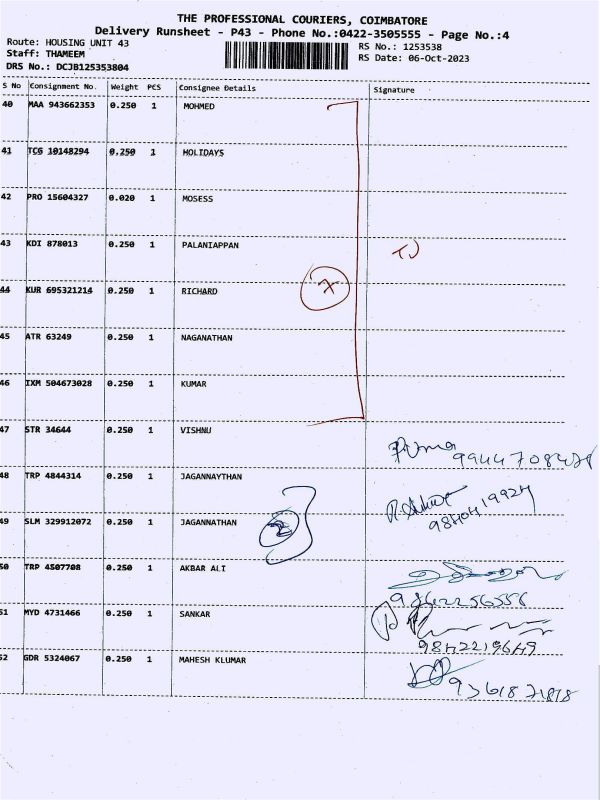 THE PROFESSIONAL COURIERS, COIMBATORE
Delivery Runsheet - P43 - Phone No.:0422-3505555 - Page No.:4
Route: HOUSING UNIT 43
RS No.: 1253538
Staff: THAMEEM
RS Date: 06-Oct-2023
DRS No.: DCJB125353804
S No Consignment No. Weight PCS Consignee Details Signature
40 MAA 943662353 0.250 1 MOHMED
41 TCG 10148294 0.250 1 HOLIDAYS
42 PRO 15604327 0.020 1 MOSESS
43 KDI 878013 0.250 1 PALANIAPPAN
44 KUR 695321214 0.250 1 RICHARD
7
45 ATR 63249 0.250 1 NAGANATHAN
46 IXM 504673028 0.250 1 KUMAR
47 STR 34644 0.250 1 VISHNU
48 TRP 4844314 0.250 1 JAGANNAYTHAN
49 SLM 329912072 0.250 1 JAGANNATHAN
2
50 TRP 4507708 0.250 1 AKBAR ALI
9862256556
51 MYD 4731466 0.250 1 SANKAR
52 GDR 5324067 0.250 1 MAHESH KLUMAR